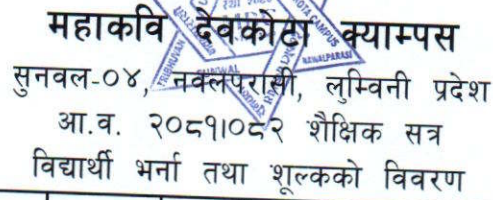 महाकवि देवकोटा क्याम्पस
सुनवल-०४, नवलपरासी, लुम्विनी प्रदेश
आ.व. २०८१।०८२ शैक्षिक सत्र
विद्यार्थी भर्ना तथा शूल्कको विवरण